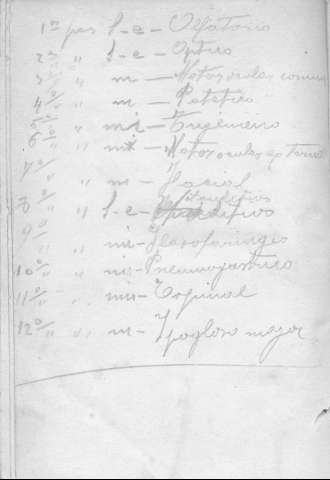 1er par s-e - Olfatorio
2º " " s-e - Optico
3º " " m - Motor ocular comun
4º " " m - Patetico
5º " " mi - Trigemino
6º " " m - Motor ocular externo
7º " " m - Facial
8º " " s-e - Auditivos
9º " " mi - Glosofaringeo
10º " " mi - Pneumogastrico
11º " " m - Espinal
12º " " m - Ipogloso mayor